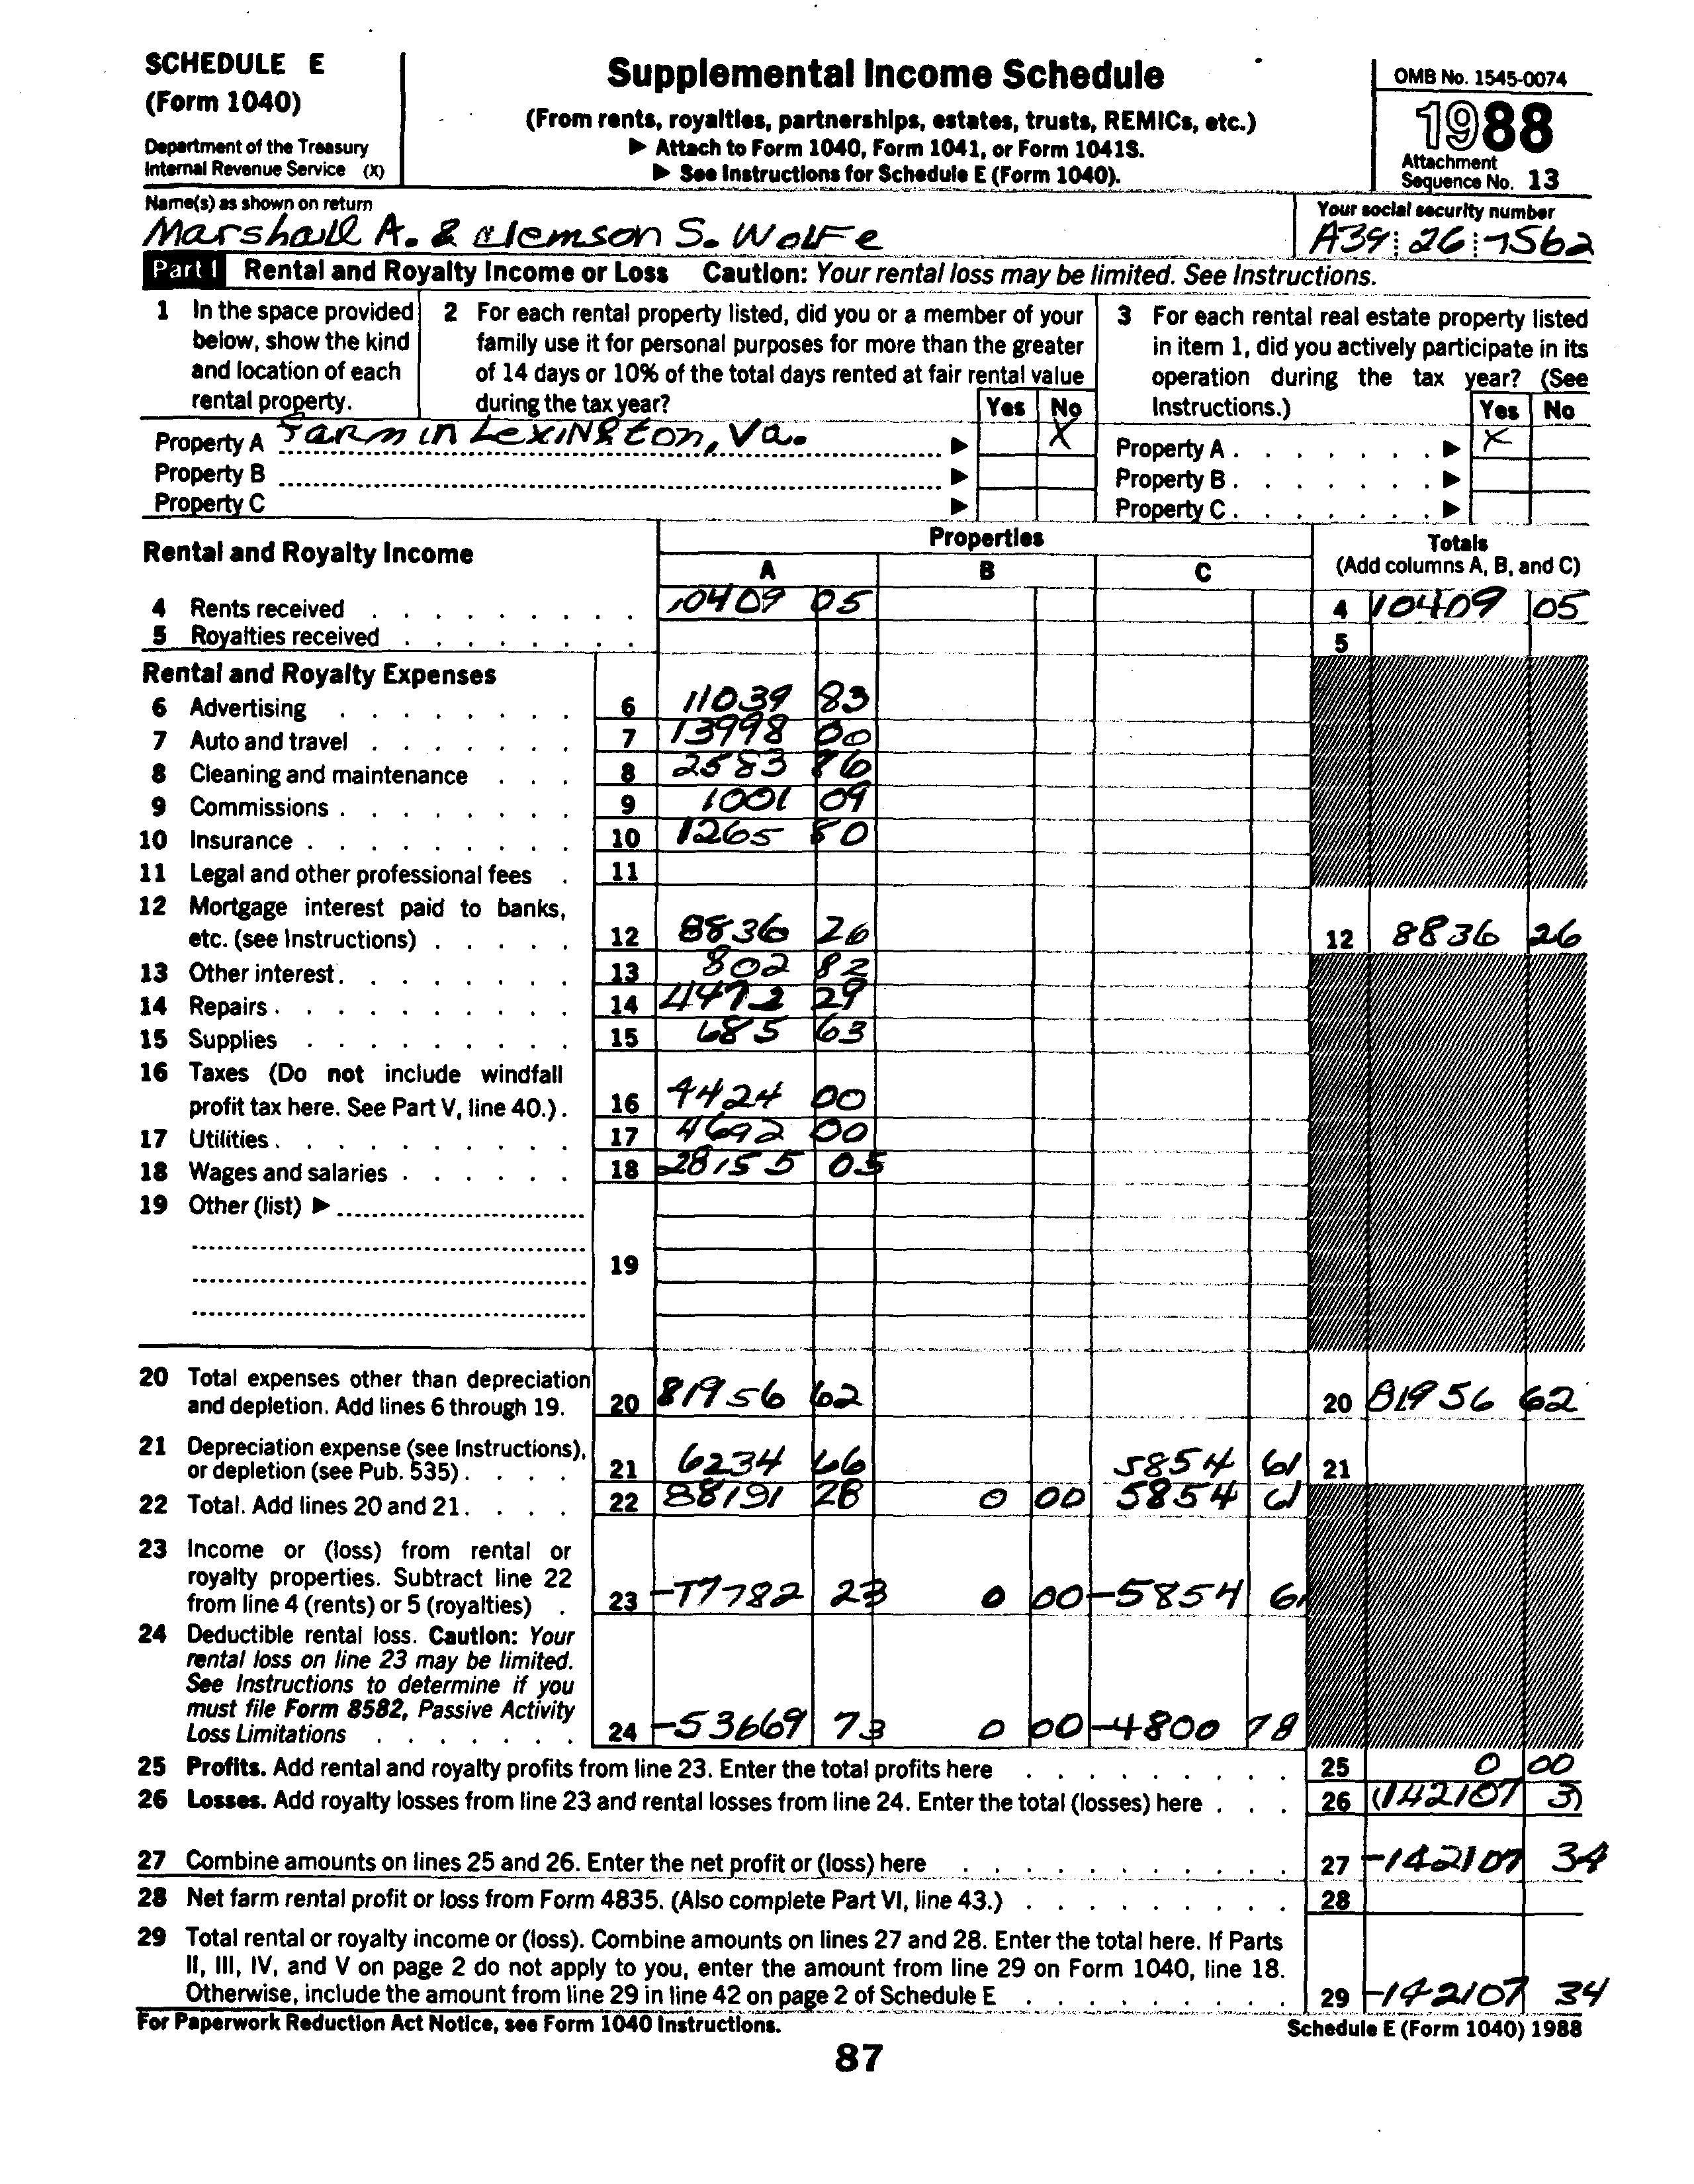 SCHEDULE E
(Form 1040)
Department of the Treasury
Internal Revenue Service (X)
Supplemental Income Schedule
(From rents, royalties, partnerships, estates, trusts, REMICs, etc.)
▶ Attach to Form 1040, Form 1041, or Form 1041S.
▶ See Instructions for Schedule E (Form 1040).
OMB No. 1545-0074
1988
Attachment
Sequence No. 13
Name(s) as shown on return
Marshall A. & Clemson S. Wolfe
Your social security number
A39 26 7562
Part I Rental and Royalty Income or Loss Caution: Your rental loss may be limited. See Instructions.
1 In the space provided
below, show the kind
and location of each
rental property.
2 For each rental property listed, did you or a member of your
family use it for personal purposes for more than the greater
of 14 days or 10% of the total days rented at fair rental value
during the tax year? Yes No
3 For each rental real estate property listed
in item 1, did you actively participate in its
operation during the tax year? (See
Instructions.) Yes No
Property A Farm in Lexington, Va. ▶ X
Property B ▶
Property C ▶
Property A . . . . . . . ▶ X
Property B . . . . . . . ▶
Property C . . . . . . . ▶
Rental and Royalty Income
Properties
A B C
Totals
(Add columns A, B, and C)
4 Rents received 10409 05 4 10409 05
5 Royalties received 5
Rental and Royalty Expenses
6 Advertising 6 11039 83
7 Auto and travel 7 13998 00
8 Cleaning and maintenance 8 2583 86
9 Commissions 9 1001 09
10 Insurance 10 1265 80
11 Legal and other professional fees 11
12 Mortgage interest paid to banks,
etc. (see Instructions) 12 8836 26 12 8836 26
13 Other interest 13 802 82
14 Repairs 14 4472 29
15 Supplies 15 685 63
16 Taxes (Do not include windfall
profit tax here. See Part V, line 40.) 16 4424 00
17 Utilities 17 4692 00
18 Wages and salaries 18 28155 05
19 Other (list) ▶
19
20 Total expenses other than depreciation
and depletion. Add lines 6 through 19. 20 81956 62 20 81956 62
21 Depreciation expense (see Instructions),
or depletion (see Pub. 535) 21 6234 66 5854 61 21
22 Total. Add lines 20 and 21 22 88191 28 0 00 5854 61
23 Income or (loss) from rental or
royalty properties. Subtract line 22
from line 4 (rents) or 5 (royalties) 23 -77782 23 0 00 -5854 61
24 Deductible rental loss. Caution: Your
rental loss on line 23 may be limited.
See Instructions to determine if you
must file Form 8582, Passive Activity
Loss Limitations 24 -53669 73 0 00 -4800 78
25 Profits. Add rental and royalty profits from line 23. Enter the total profits here 25 0 00
26 Losses. Add royalty losses from line 23 and rental losses from line 24. Enter the total (losses) here 26 (142107 3)
27 Combine amounts on lines 25 and 26. Enter the net profit or (loss) here 27 -142107 34
28 Net farm rental profit or loss from Form 4835. (Also complete Part VI, line 43.) 28
29 Total rental or royalty income or (loss). Combine amounts on lines 27 and 28. Enter the total here. If Parts
II, III, IV, and V on page 2 do not apply to you, enter the amount from line 29 on Form 1040, line 18.
Otherwise, include the amount from line 29 in line 42 on page 2 of Schedule E 29 -142107 34
For Paperwork Reduction Act Notice, see Form 1040 Instructions.
Schedule E (Form 1040) 1988
87